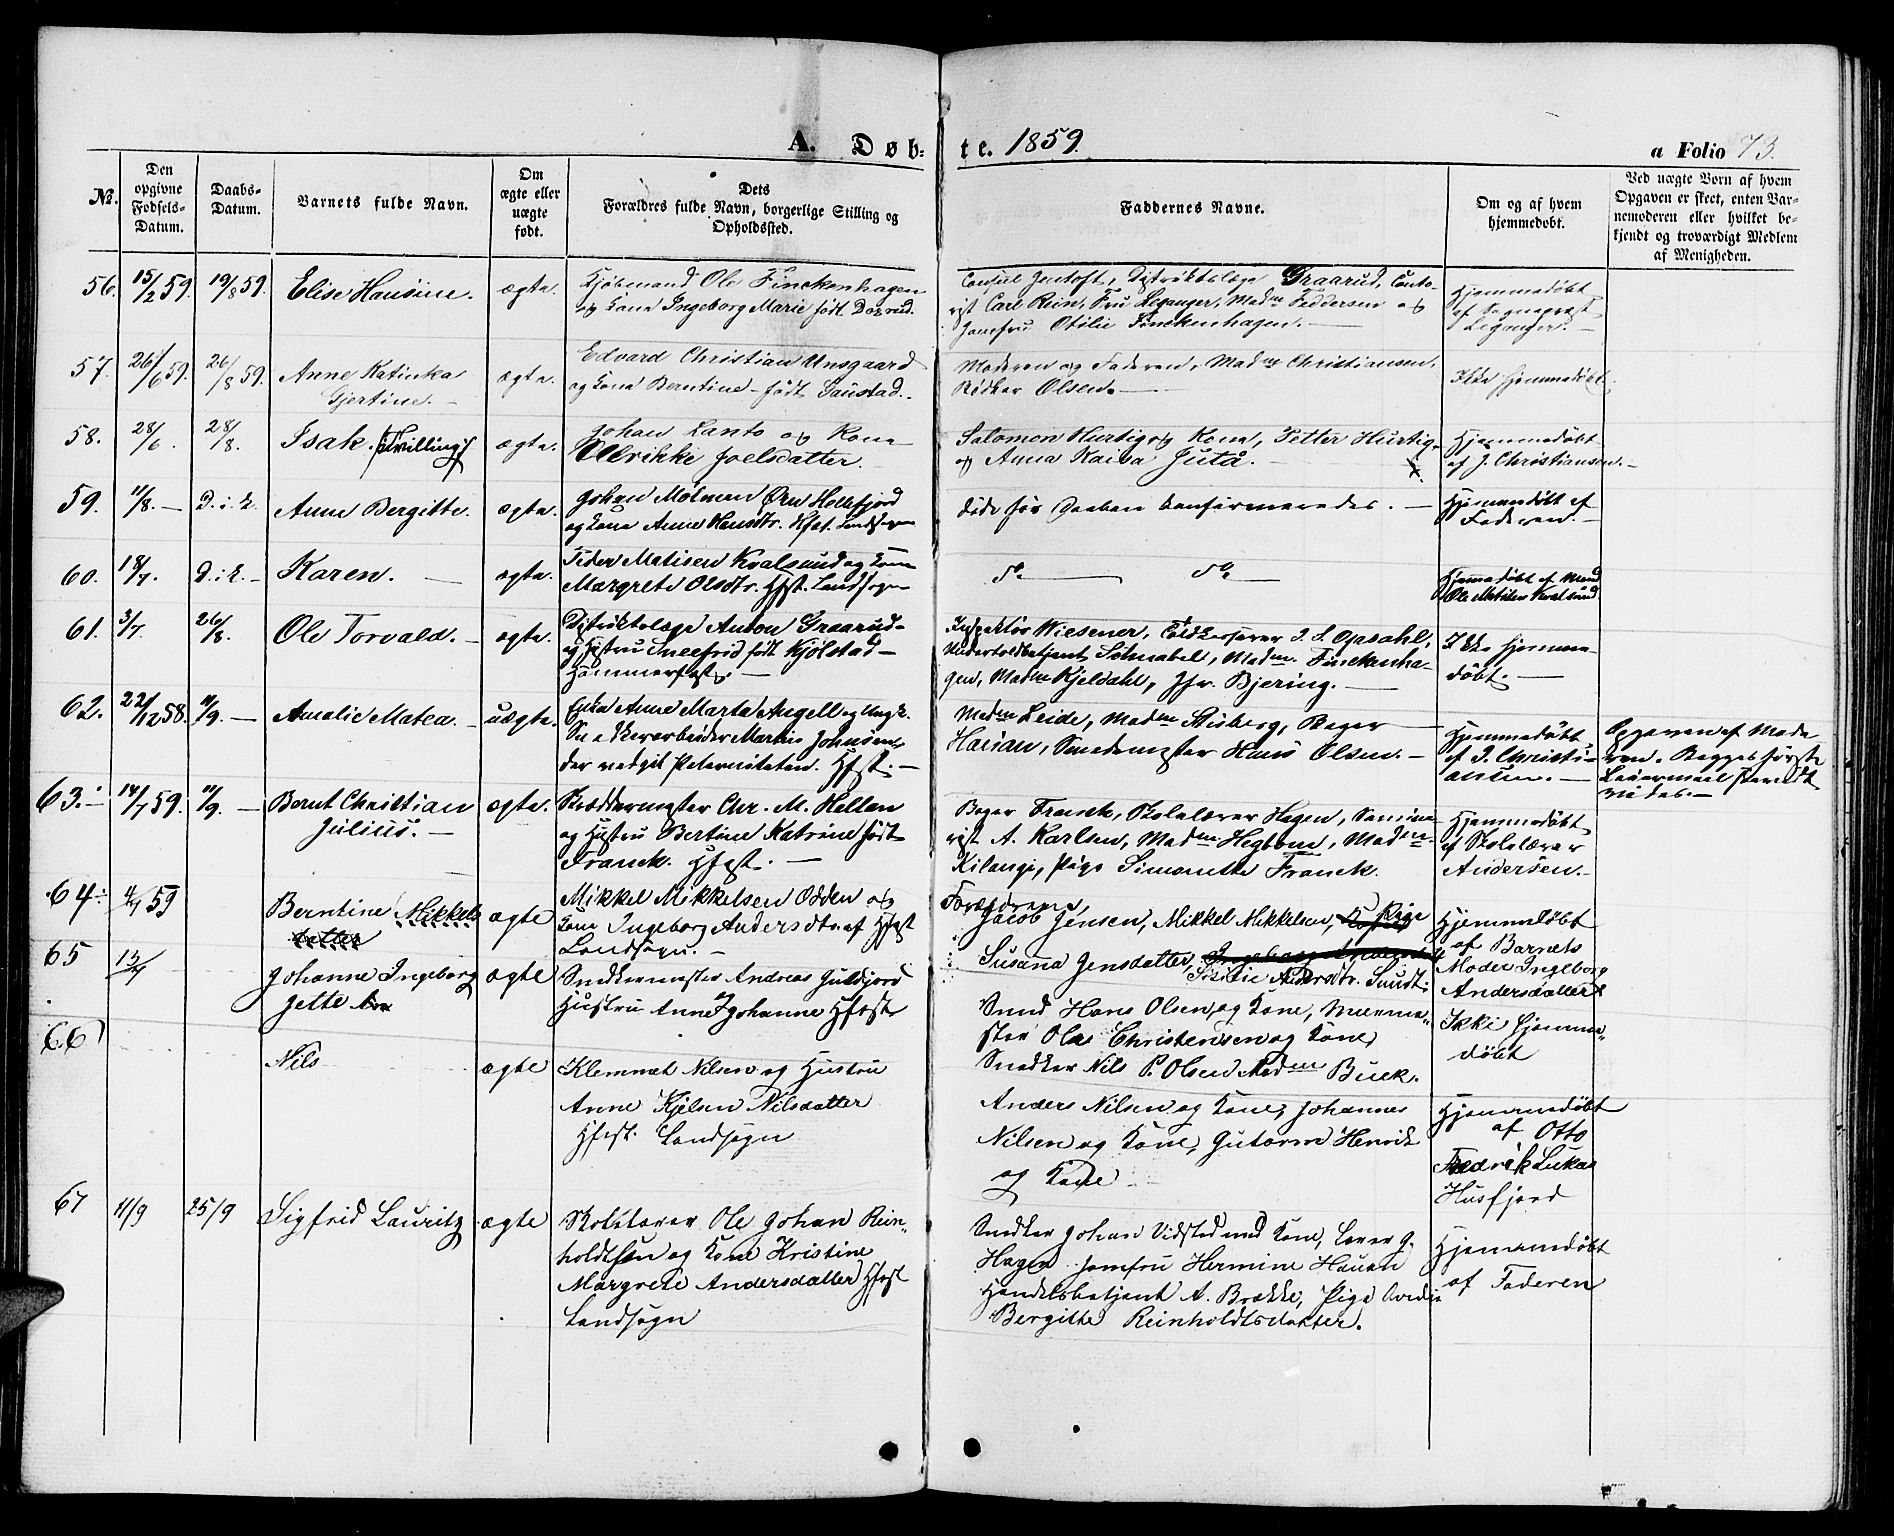 A. Døb-
te. 1859.
a Folio 73.
No.
Den
opgivne
Fødsels-
Datum.
Daabs-
Datum.
Barnets fulde Navn.
Om
ægte eller
uægte
født.
Dets
Forældres fulde Navn, borgerlige Stilling og
Opholdssted.
Faddernes Navne.
Om og af hvem
hjemmedøbt.
Ved uægte Born af hvem
Opgaven er skeet, enten Bar-
nemoderen eller hvilket be-
kjendt og troværdigt Medlem
af Menigheden.
56. 15/2 59. 19/8 59. Elise Hansine. ægte.
Kjøbmand Ole Finckenhagen
og Kone Ingeborg Marie født
Consul Jentoft, Distriktslæge Graarud, Conto-
rist Carl Rein, Fru Leganger, Madm Feddersen og
Jomfru Otilie Finckenhagen. —
Hjemmedøbt
af Sognepræst
Leganger. —
57. 26/6 59. 26/8 59. Anne Katinka
Gjertine. — ægte.
Edvard Christian Unsgaard
og Kone Berntine født Saustad. -
Moderen og Faderen, Madm Christiansen,
Rødker Olsen. —
Ikke hjemmedøbt.
58. 28/6. 28/8. Isak. (Tvilling) ægte.
Johan Lanto og Kone
Ulrikke Joelsdatter.
Salomon Hurtig og Kone, Petter Hurtig
og Anna Kaisa Jutå. —
Hjemmedøbt
af J. Christiansen. —
59. 11/8. — D. i. K. Anne Bergitte. ægte.
Johan Molman Ørn Hollefjord
og Kone Anne Hansdtr. Hfst. Landsogn
døde før Daaben confirmeredes. —
Hjemmedøbt af
Faderen. —
60. 18/7. D. i. K. — Karen. — ægte.
Peder Matisen Kvalsund og Kone
Margrete Olsdtr. Hfst. Landsogn
do — do —
Hjemmedøbt af Mand
Ole Matisen Kvalsund
61. 3/7. 26/8. Ole Torvald. — ægte.
Distriktslæge Anton Graarud
og Hustru født Kjølstad —
Hammerfest. —
Inspektør Wiesener, Toldkasserer J. S. Opsahl,
Undertoldbetjent Schnabel, Madm. Finckenha-
gen, Madm Kjeldahl, Jfr. Bjering. —
Ikke hjemme-
døbt. —
62. 22/12 58. 11/9. — Amalie Matea. — uægte.
Enke Anne Marta Angell og Ungk.
Snedkerarbeider Martin Johnsen,
der vedgik Paterniteten. Hfst. —
Madm Leide, Madm Stisberg, Bager
Hansen, Smedemester Hans Olsen. —
Hjemmedøbt
af J. Christi-
ansen. —
Opgaven af Mode-
ren. Begges første
Leiermaal
63. — 14/7 59. 11/9. — Bernt Christian
Julius. — ægte.
Skræddermester Chr. M. Hellan
og Hustru Bertine Katrine født
Franck. Hfst. —
Bager Franck, Skolelærer Hagen, Semina-
rist A. Karlsen, Madm Hegtom, Madm
Kilangi, Pige Simonette Franck.
Hjemmedøbt
af Skolelærer
Andersen. —
64. 4/4 59 Berntine Mikkels
datter ægte
Mikkel Mikkelsen Odden og
Kone Ingeborg Andersdtr. af Hfst
Landsogn. —
Forældrene,
Jacob Jensen, Mikkel Mikkelsen, Pige
Susana Jensdatter,
Andersdtr. Sundt.
Hjemmedøbt
af Barnets
Moder Ingeborg
Andersdatter
65 13/7 Johanne Ingeborg
Jette ægte
Snedkermester Andreas Guldfjord
Hustru Anne Johanne Hfest
Smed Hans Olsen og Kone, Murme-
ster Olas Christensen og Kone,
Snedker Nils P. Olsen Madm Buck.
Ikke Hjemme-
døbt
66 Nils ægte
Klemmet Nilsen og Hustru
Anne Kjelsen Nilsdatter
Hfest. Landsogn
Anders Nilsen og Kone, Johannes
Nilsen og Kone, Gutorm Henrik
og Kone —
Hjemmedøbt
af Otto
Fredrik Lukas
Husfjord
67 11/9 25/9 Sigfrid Lauritz ægte
Skolelærer Ole Johan Rein-
holdtsen og Kone Kristine
Margrete Andersdatter Hfest
Landsogn
Snedker Johan Vidsted med Kone, Lærer G.
Hagen Jomfru Hermine Hansen
Handelsbetjent A. Brække, Pige
Bergitte Reinholdtsdatter.
Hjemmedøbt
af Faderen